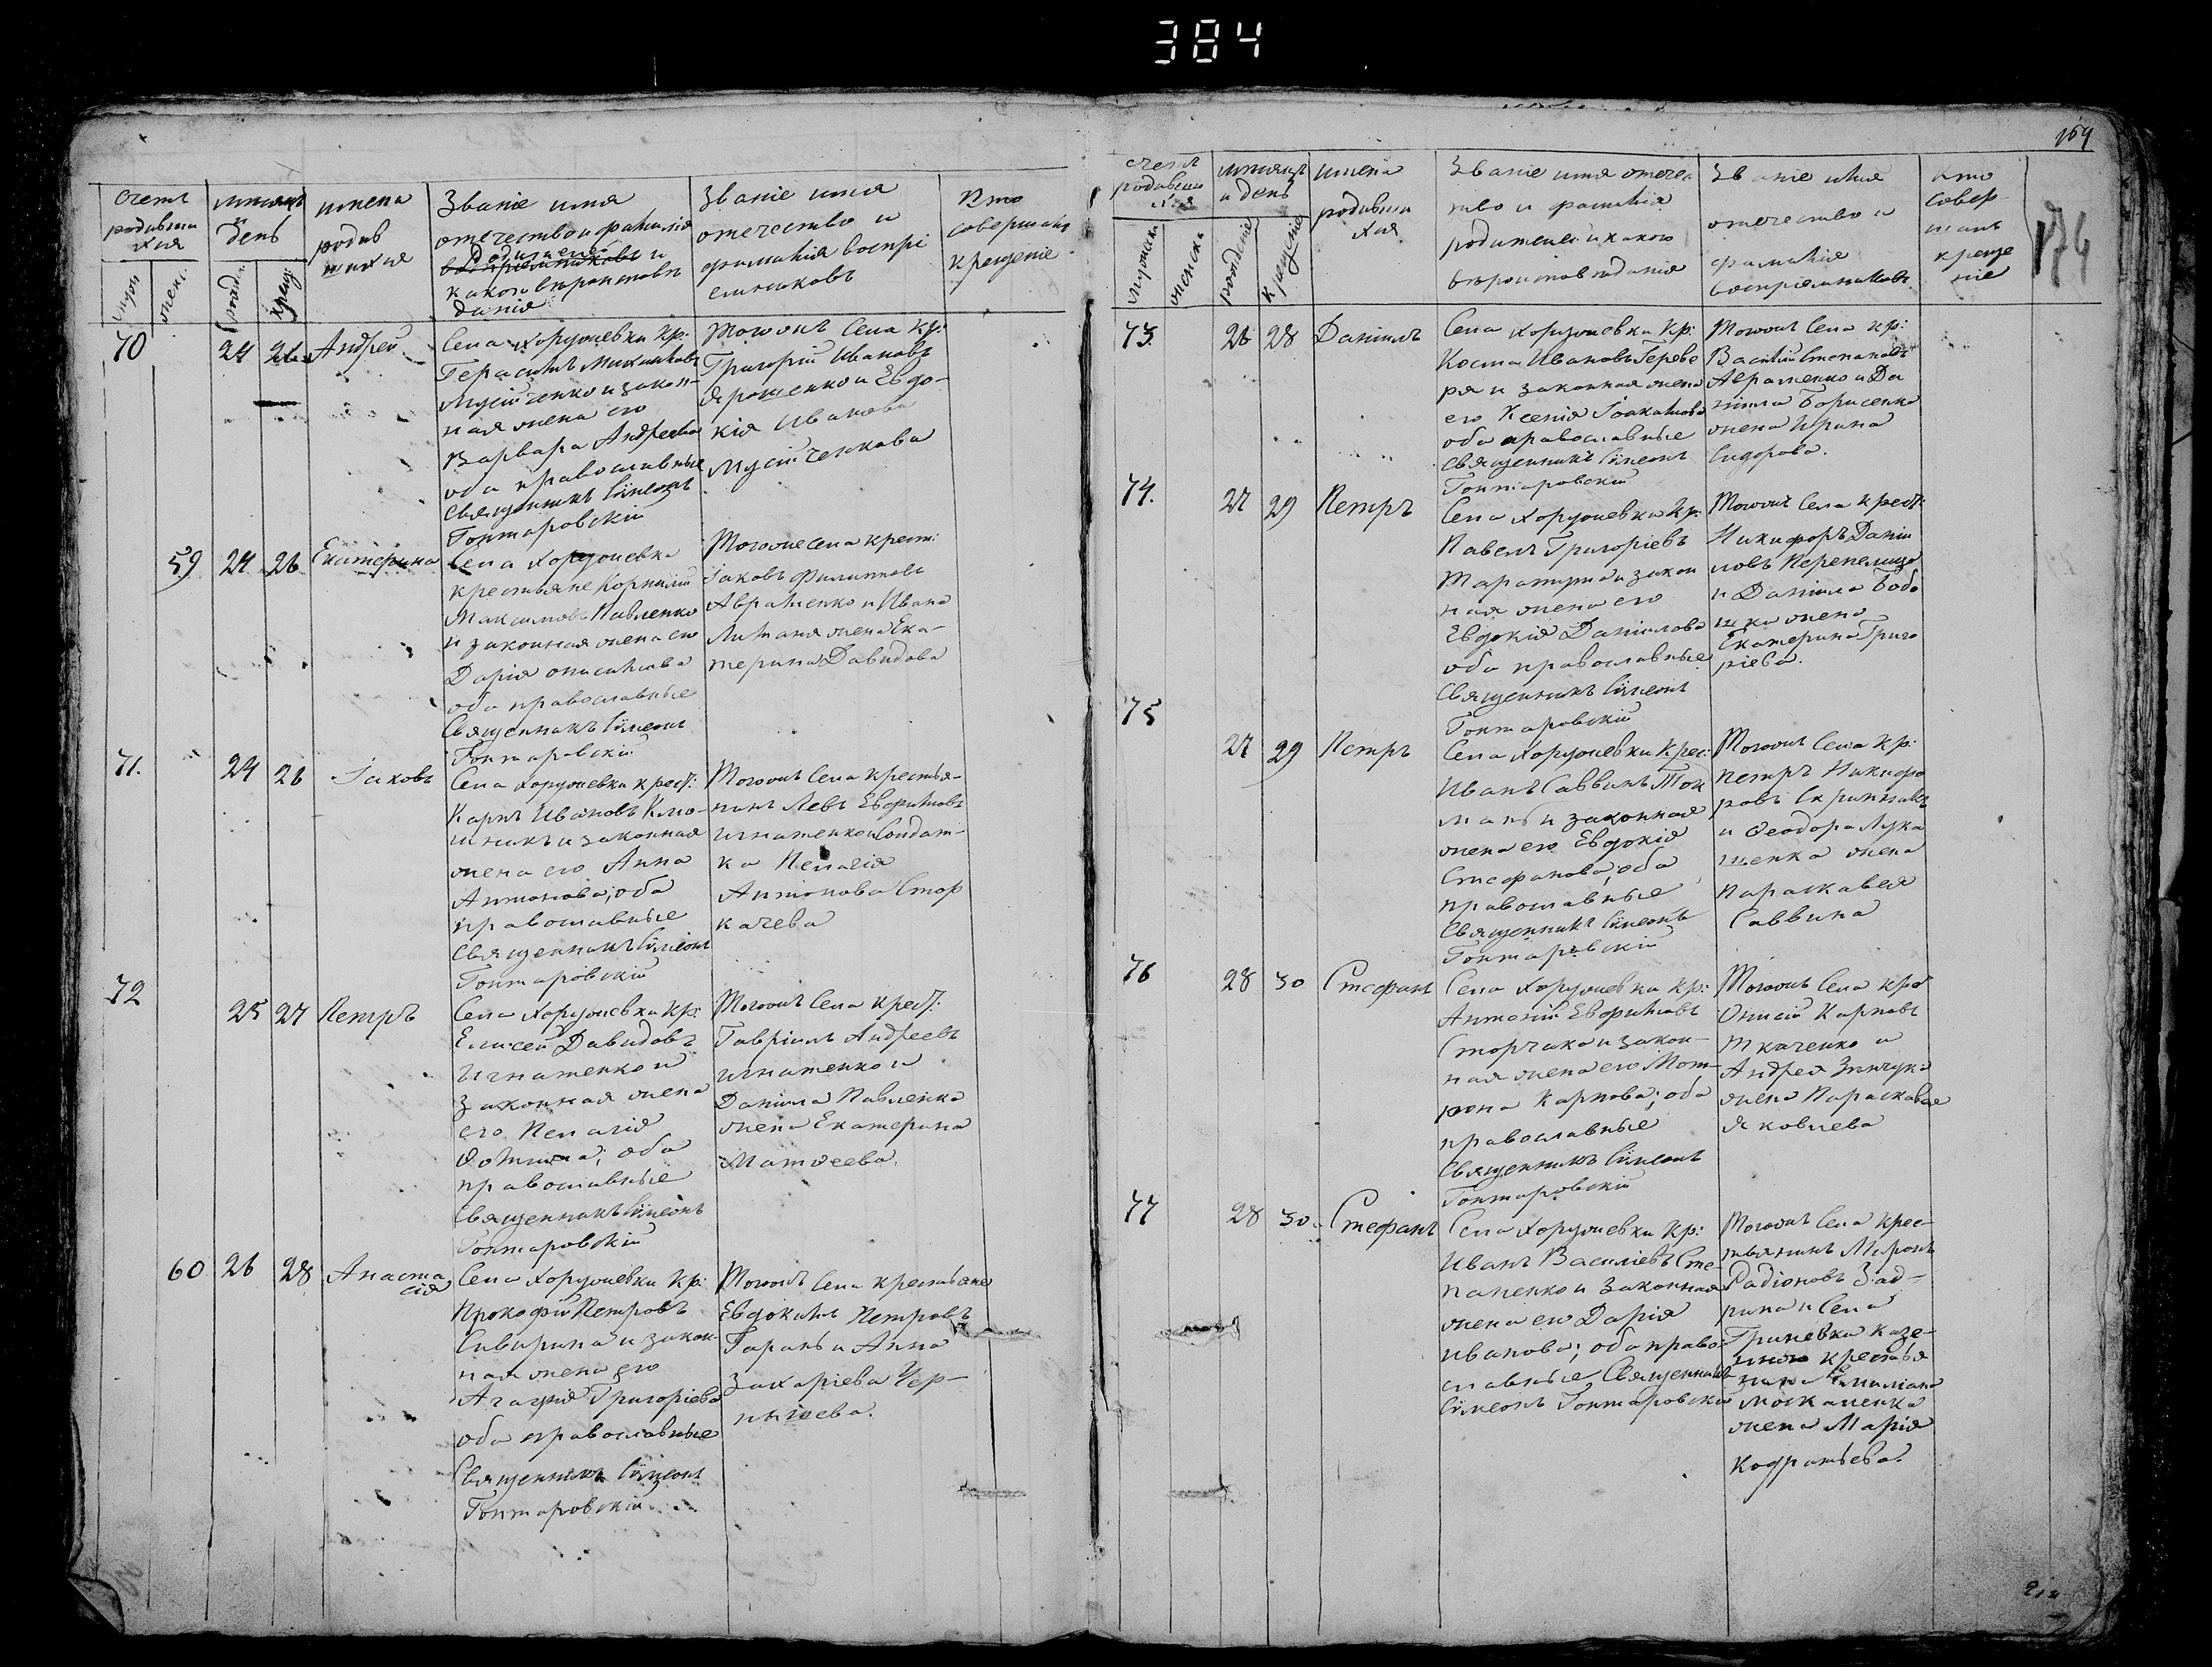 384
счетъ
родивши
хся
муж
женс.
мѣсяцъ
и
день
рожд.
крещ.
имена
родив
шихся
Званіе имя
отечество и фамилія
родителей
воспріемниковъ и
какого вѣроисповѣ
данія
Званіе имя
отечество и
фамилія воспрі
емниковъ
Кто
совершалъ
крещеніе
70
24
26
Андрей
Села Хоружевки кр:
Герасимъ Михайловъ
Мусійченко и закон-
ная жена его
Варвара Андреева
оба православные
Священникъ Сѵмеонъ
Гонтаровскій
Тогожъ Села кр:
Григорій Ивановъ
Ярошенко и Евдо-
кія Иванова
Мусійченкова
59
24
26
Екатерина
Села Хоружевки
крестьяне Корнилій
Максимовъ Павленко
и законная жена его
Дарія Онисимова
оба православные
Священникъ Сѵмеонъ
Гонтаровскій
Тогоже села крест:
Іаковъ Филипповъ
Авраменко и Ивана
Литвина жена Ека-
терина Давидова
71.
24
26
Іаковъ
Села Хоружевки крест:
Карпъ Ивановъ Клю-
шникъ и законная
жена его Анна
Антонова; оба
православные
Священникъ Сѵмеонъ
Гонтаровскій
Тогожъ Села крестья-
нинъ Левъ Евфимовъ
Игнатенко и Солдат-
ка Пелагія
Антонова Стор
качева
72
25
27
Петръ
Села Хоружевки кр:
Елисей Давидовъ
Игнатенко и
законная жена
его Пелагія
Ѳомина; оба
православные
Священникъ Сѵмеонъ
Гонтаровскій
Тогожъ Села крест:
Гавріилъ Андреевъ
Игнатенко и
Даніила Павленка
жена Екатерина
Матѳеева.
60
26
28
Анаста
сія
Села Хоружевки кр:
Прокофій Петровъ
Сивирина и закон-
ная жена его
Агафія Григоріева
оба православные
Священникъ Сѵмеонъ
Гонтаровскій
Тогожъ Села крестьяне
Евдокимъ Петровъ
Гарань и Анна
Захаріева Чер-
нышева.
169
174
счетъ
родивши
хся
мужска
женска
мѣсяцъ
и день
рожденіе
крещеніе
имена
родивши
хся
Званіе имя отечес
тво и фамилія
родителей и какого
вѣроисповѣданія
Званіе имя
отечество и
фамилія
воспріемниковъ
кто
совер
шалъ
креще
ніе
73.
26
28
Даніилъ
Села Хоружевки кр:
Косма Ивановъ Гереве
ря и законная жена
его Ксенія Іоакимова
оба православные
Священникъ Сѵмеонъ
Гонтаровскій
Тогожъ Села кр:
Василій Степановъ
Авраменко и Да
ніила Борисенка
жена Ирина
Сидорова.
74.
27
29
Петръ
Села Хоружевки кр:
Павелъ Григоріевъ
Таратута и закон
ная жена его
Евдокія Даніилова
оба православные
Священникъ Сѵмеонъ
Гонтаровскій
Тогожъ Села крест:
Никифоръ Даніи
ловъ Перепелица
и Даніила Бобо
шка жена
Екатерина Григо
ріева.
75
27
29
Петръ
Села Хоружевки крес:
Иванъ Саввинъ Ток
мань и законная
жена его Евдокія
Стефанова; оба
православные
Священникъ Сѵмеонъ
Гонтаровскій
Тогожъ Села кр:
Петръ Никифо
ровъ Скрипникъ
и Ѳеодора Лука
шенка жена
Параскавея
Саввина
76
28
30
Стефанъ
Села Хоружевки кр:
Антоній Евфимовъ
Сторчако и закон-
ная жена его Мот-
рона Карпова; оба
православные
Священникъ Сѵмеонъ
Гонтаровскій
Тогожъ Села кр:
Онисій Карповъ
Ткаченко и
Андрея Зинчука
жена Параскавея
Яковлева
77
28
30
Стефанъ
Села Хоружевки кр:
Иванъ Василіевъ Сте-
паненко и законная
жена его Дарія
Иванова; оба право-
славные Священникъ
Сѵмеонъ Гонтаровскій
Тогожъ Села крес-
тьянинъ Миронъ
Радіоновъ Зад-
рина и Села
Гриневки казе-
ннаго крестья
нина Емиліана
Москаленка
жена Марія
Кодратьева.